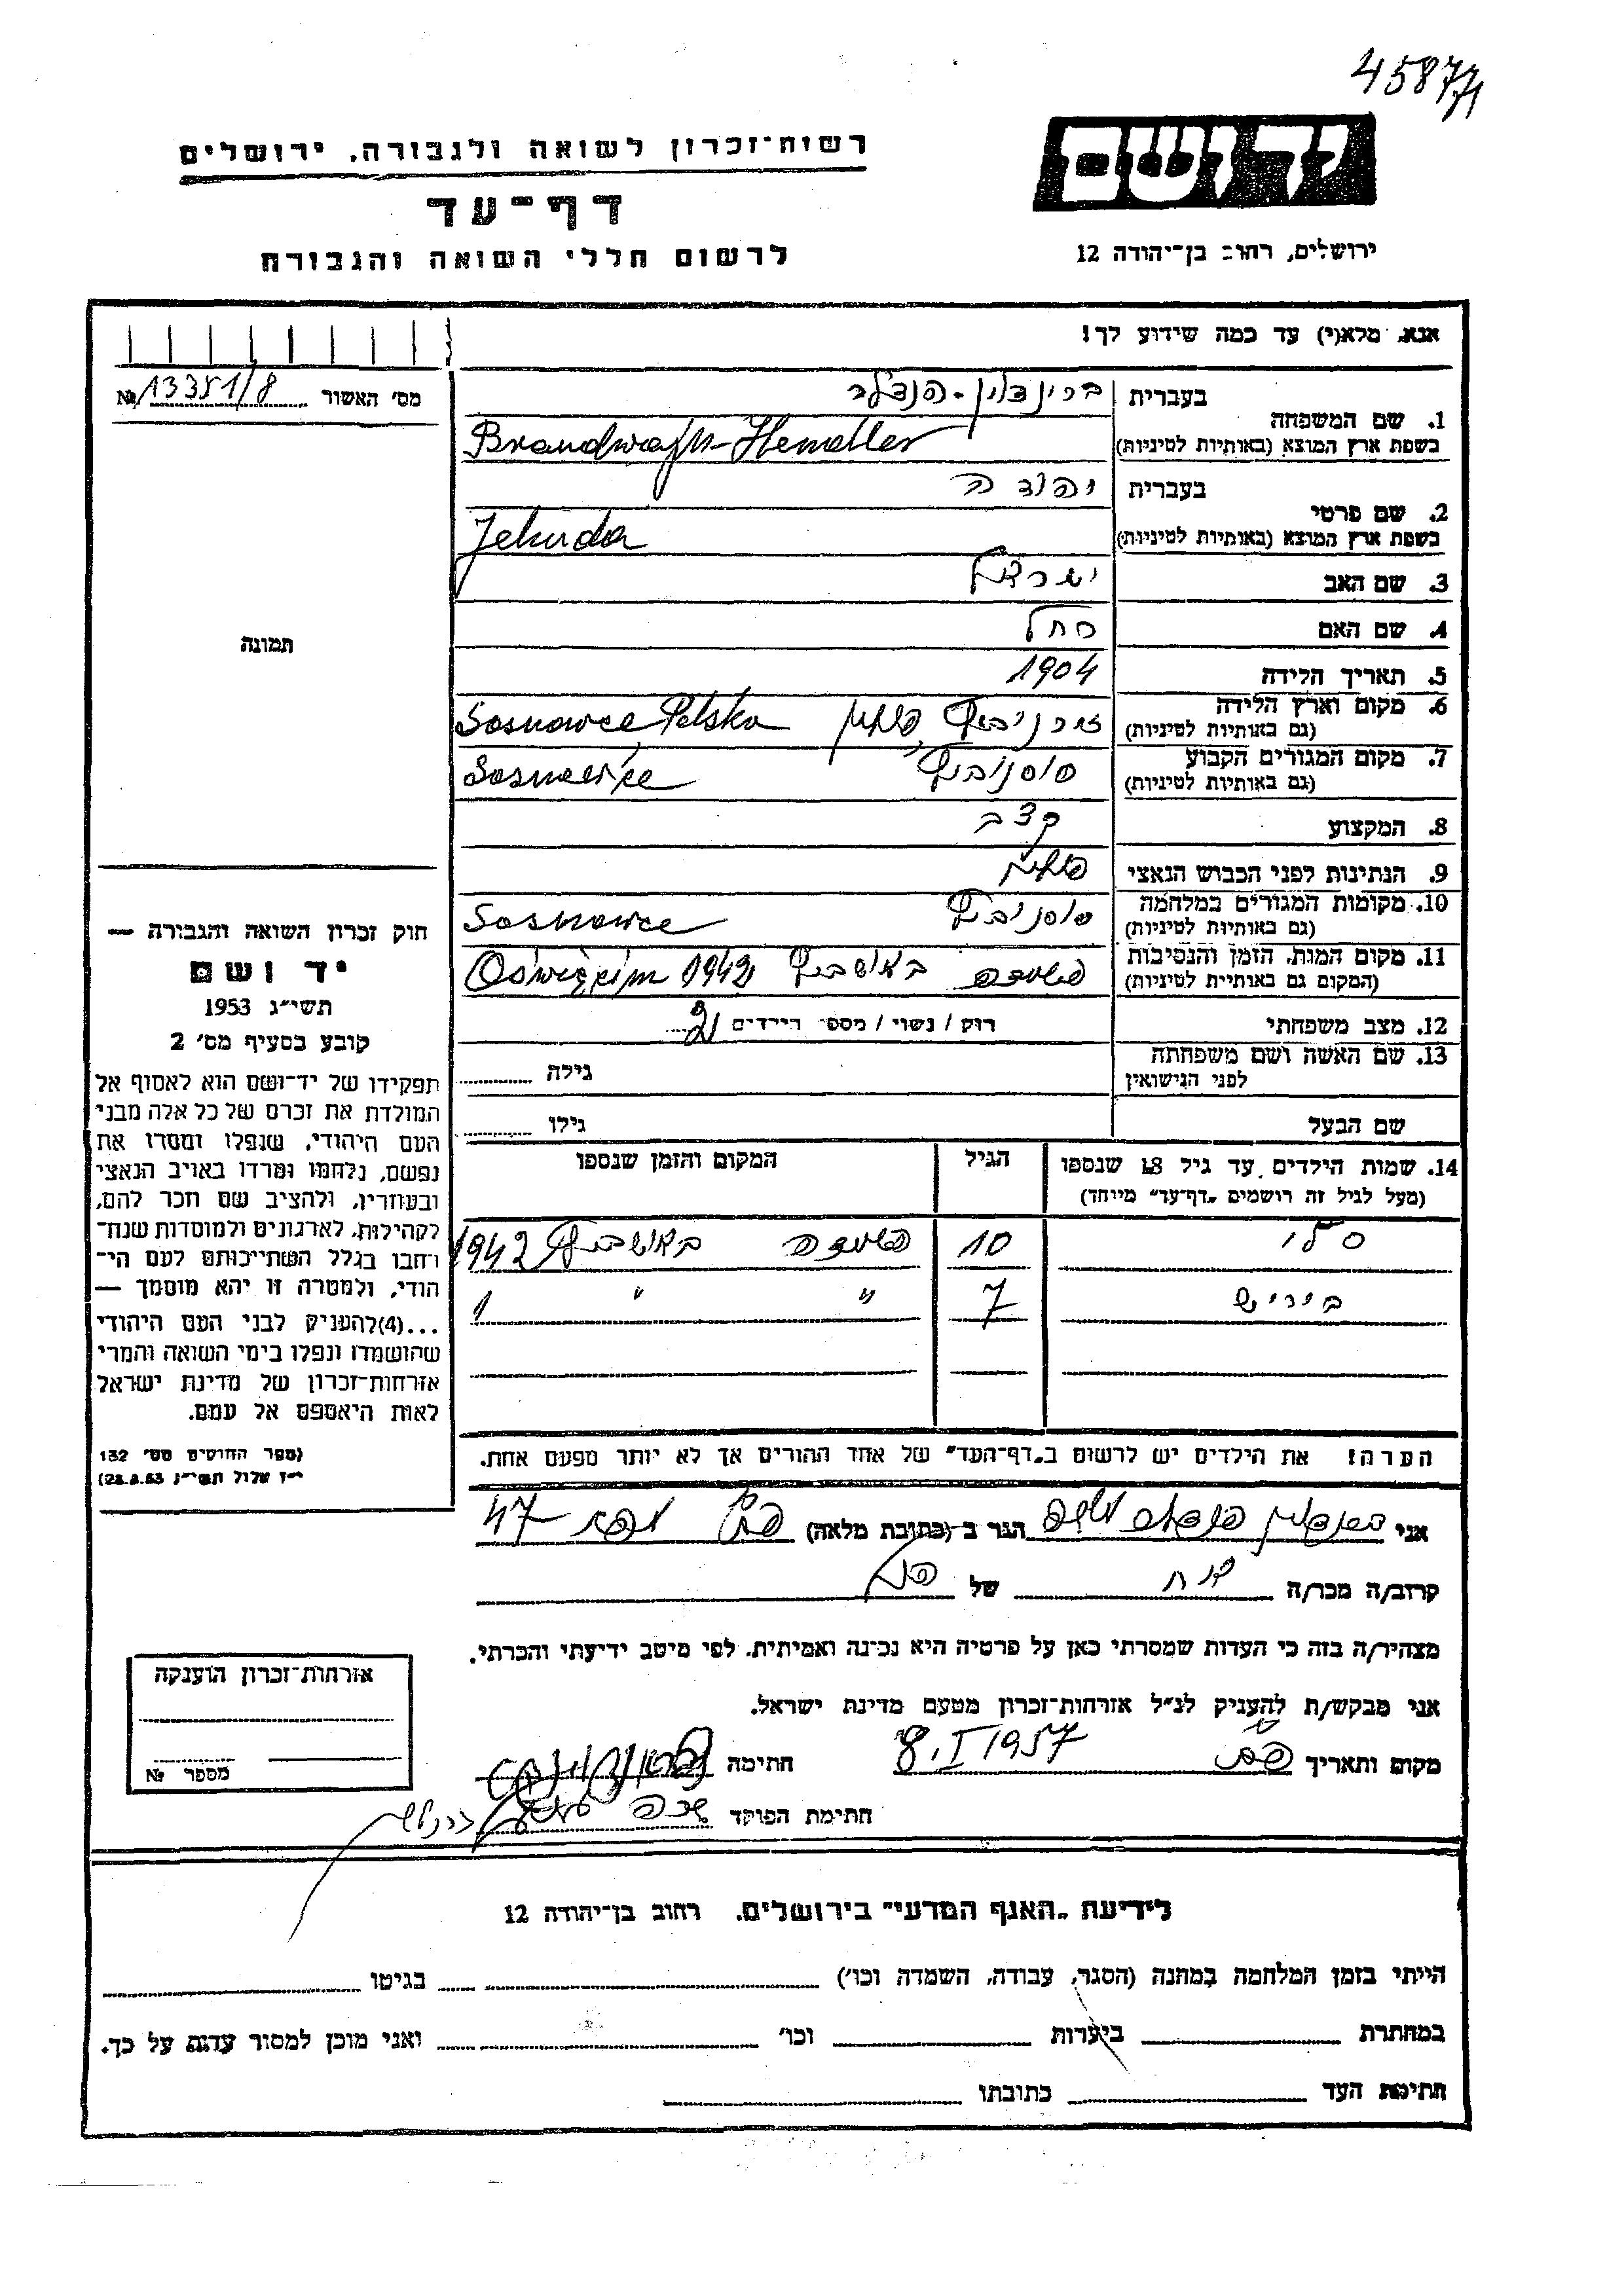 45877/1
יד ושם
רשות־זכרון לשואה ולגבורה, ירושלים
דף־עד
לרשום חללי השואה והגבורה
ירושלים, רחוב בן־יהודה 12
אנא, מלא(י) עד כמה שידוע לך!
מס׳ האשור 13351/8 №
1. שם המשפחה בעברית ברינדוין - הנדלר
בשפת ארץ המוצא (באותיות לטיניות) Brandwajn-Hemdler
2. שם פרטי בעברית יהודה
בשפת ארץ המוצא (באותיות לטיניות) Jehuda
3. שם האב ישראל
4. שם האם רחל
תמונה
5. תאריך הלידה 1904
6. מקום וארץ הלידה (גם באותיות לטיניות) פולין Sosnowce Polska
7. מקום המגורים הקבוע (גם באותיות לטיניות) סוסנוביץ Sosnowice
8. המקצוע קצב
9. הנתינות לפני הכבוש הנאצי פולנית
10. מקומות המגורים במלחמה (גם באותיות לטיניות) סוסנוביץ Sosnowce
11. מקום המות, הזמן והנסיבות (המקום גם באותיית לטיניות) באושביץ Oświęcim 1942
12. מצב משפחתי רוק / נשוי / מספר הילדים 2
13. שם האשה ושם משפחתה לפני הנישואין גילה
שם הבעל גילו
14. שמות הילדים עד גיל 18 שנספו הגיל המקום והזמן שנספו
(מעל לגיל זה רושמים "דף־עד" מיוחד)
10 באושביץ 1942
7 " " 1
הערה! את הילדים יש לרשום ב"דף־העד" של אחד ההורים אך לא יותר מפעם אחת.
חוק זכרון השואה והגבורה —
יד ושם
תשי״ג 1953
קובע בסעיף מס׳ 2
תפקידו של יד־ושם הוא לאסוף אל
המולדת את זכרם של כל אלה מבני
העם היהודי, שנפלו ומסרו את
נפשם, נלחמו ומרדו באויב הנאצי
ובעוזריו, ולהציב שם וזכר להם,
לקהילות, לארגונים ולמוסדות שנח־
רבו בגלל השתייכותם לעם הי־
הודי, ולמטרה זו יהא מוסמך —
...(4) להעניק לבני העם היהודי
שהושמדו ונפלו בימי השואה והמרי
אזרחות־זכרון של מדינת ישראל
לאות היאספם אל עמם.
(ספר החוקים מס׳ 132
י״ז אלול תשי״ג 28.8.53)
אני הגר ב (כתובת מלאה) 47
קרוב/ה מכר/ה של
מצהיר/ה בזה כי העדות שמסרתי כאן על פרטיה היא נכונה ואמיתית, לפי מיטב ידיעתי והכרתי.
אני מבקש/ת להעניק לנ״ל אזרחות־זכרון מטעם מדינת ישראל.
מקום ותאריך 8.I 1957 חתימה
חתימת הפוקד
אזרחות־זכרון הוענקה
מספר №
לידיעת "האגף המדעי" בירושלים, רחוב בן־יהודה 12
הייתי בזמן המלחמה במחנה (הסגר, עבודה, השמדה וכו׳) בגיטו
במחתרת ביערות וכו׳ ואני מוכן למסור עדות על כך.
חתימת העד כתובתו